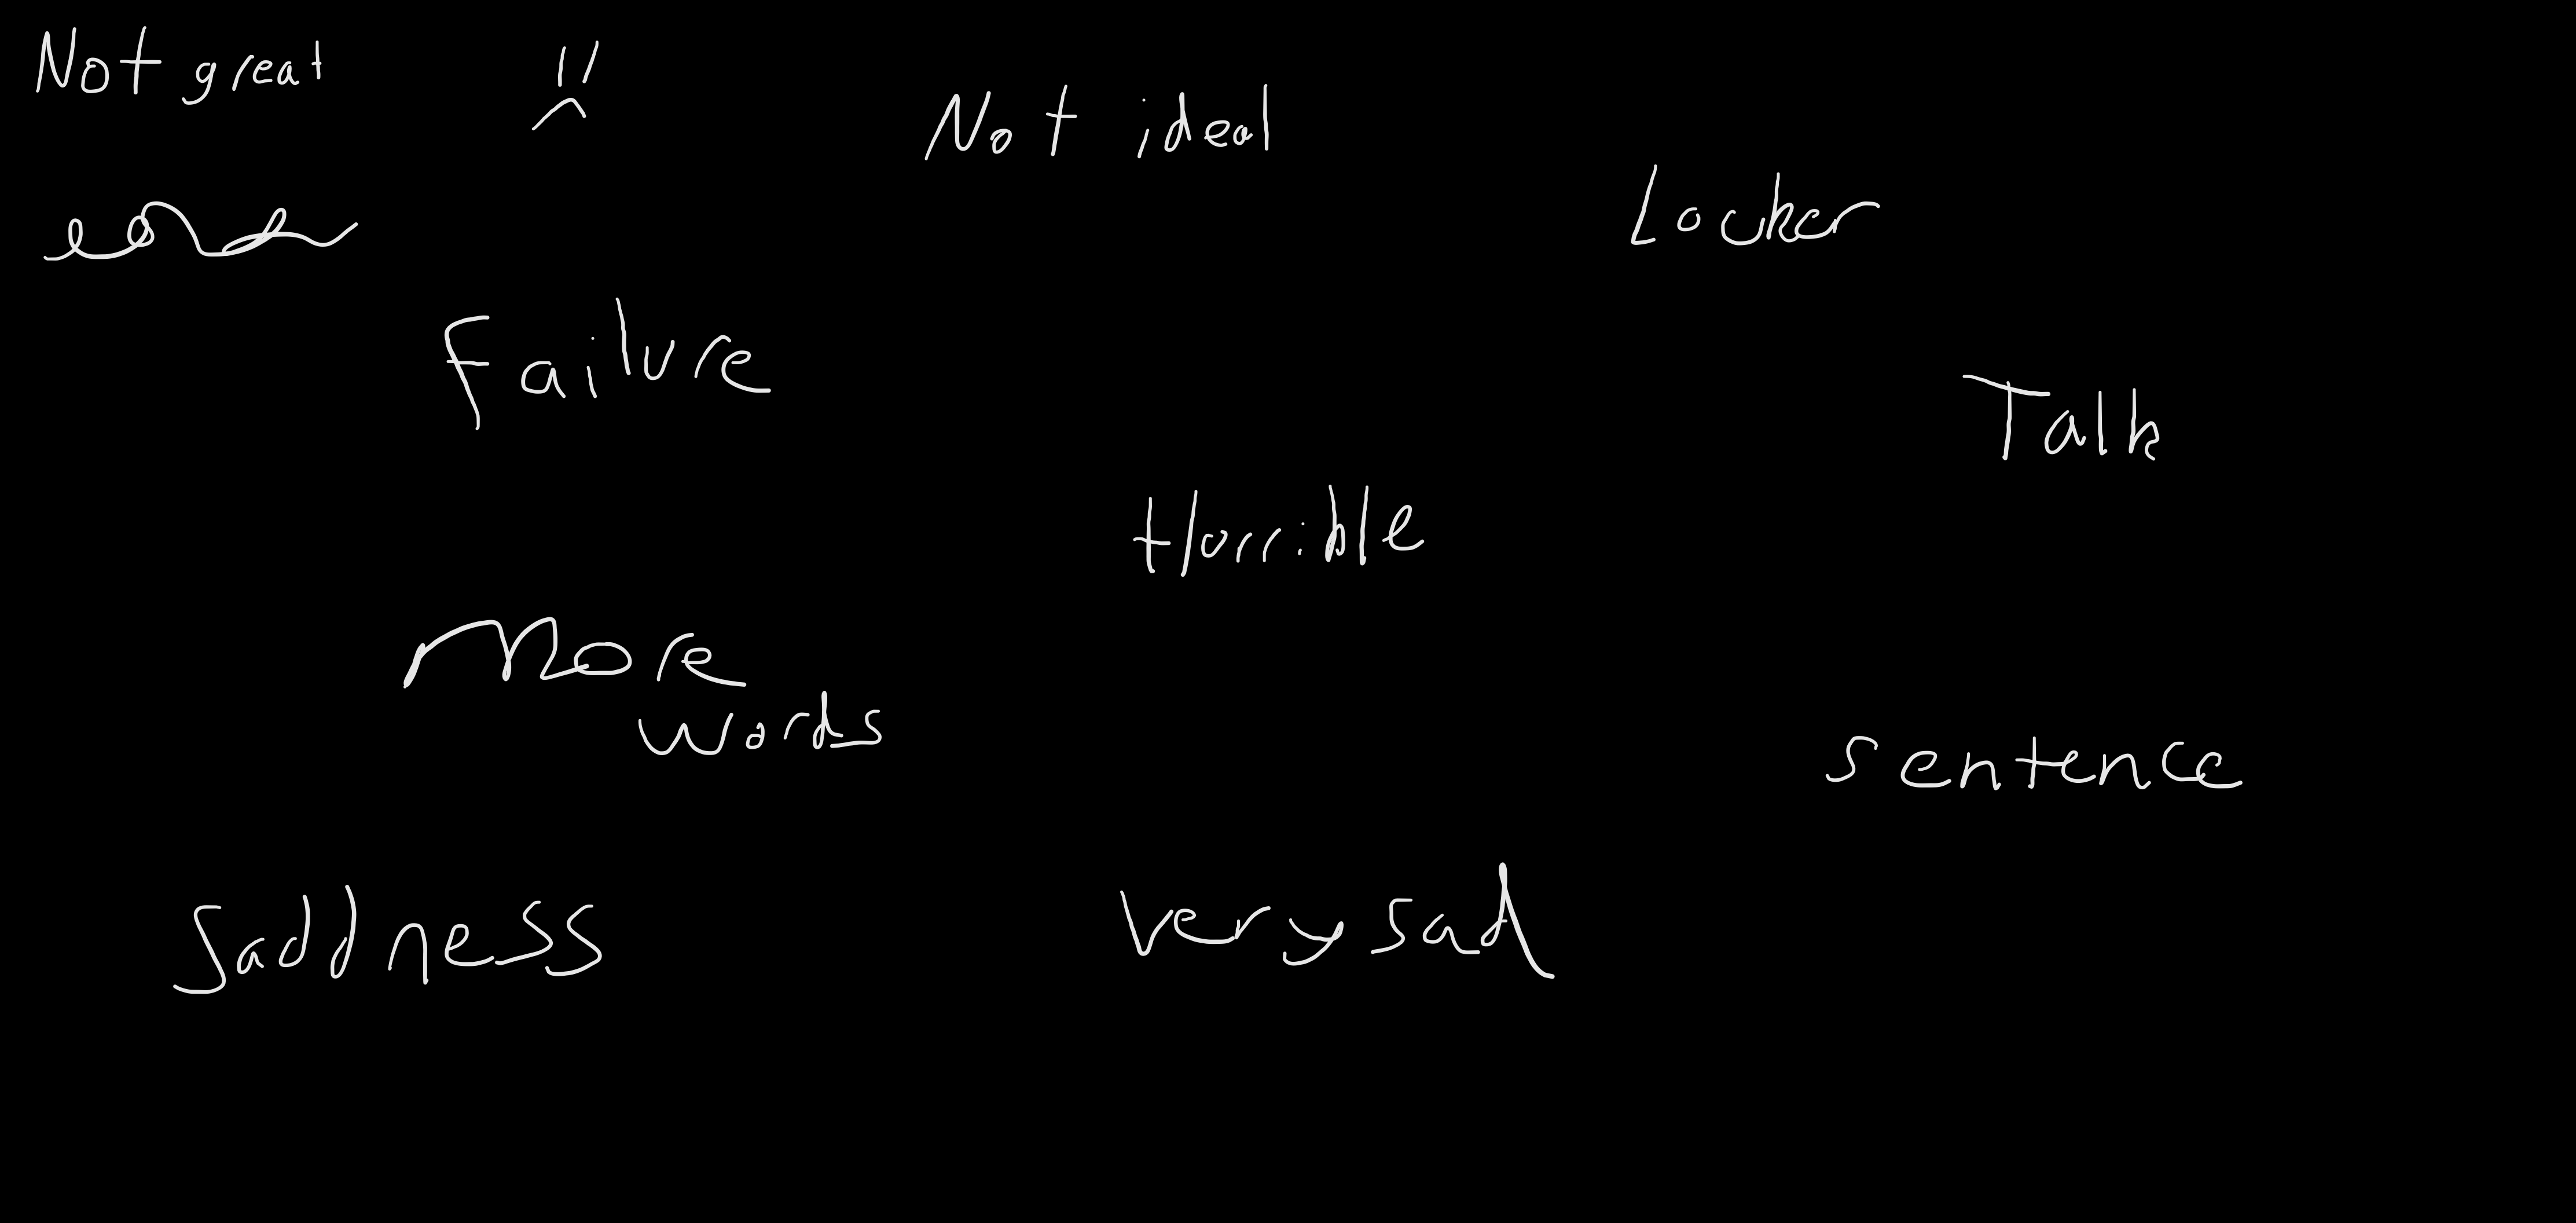 Not great
Not ideal
Locker
Failure
Talk
Horrible
More
words
Sentence
Saddness
Very sad